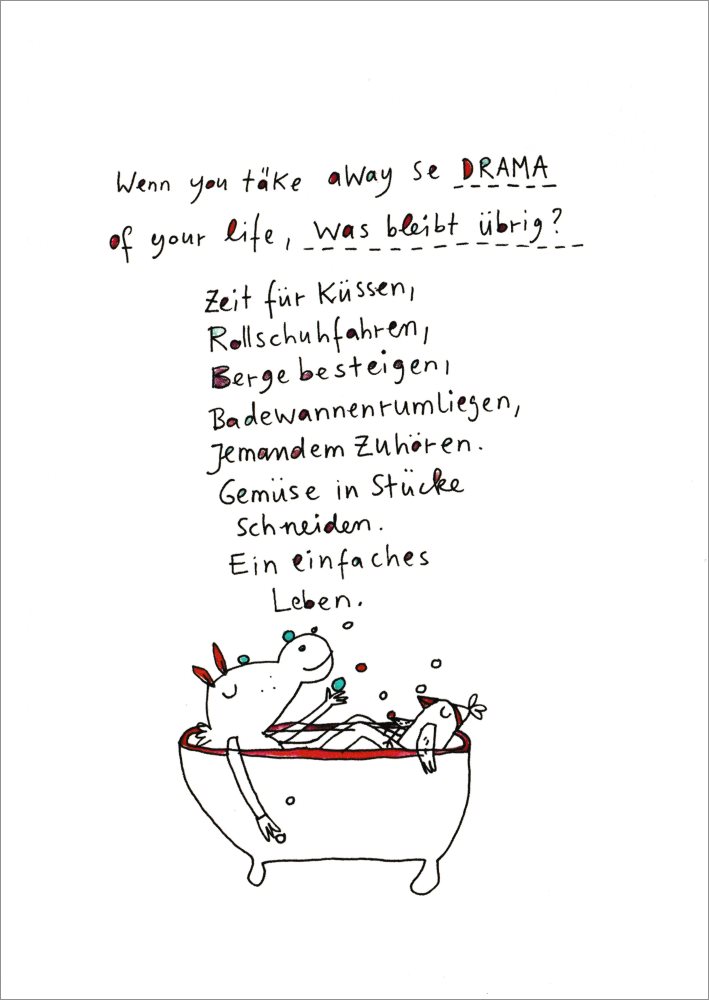 Wenn you täke aWay se DRAMA
of your life, was bleibt übrig?
Zeit für Küssen,
Rollschuhfahren,
Berge besteigen,
Badewannenrumliegen,
Jemandem Zuhören.
Gemüse in Stücke
Schneiden.
Ein einfaches
Leben.